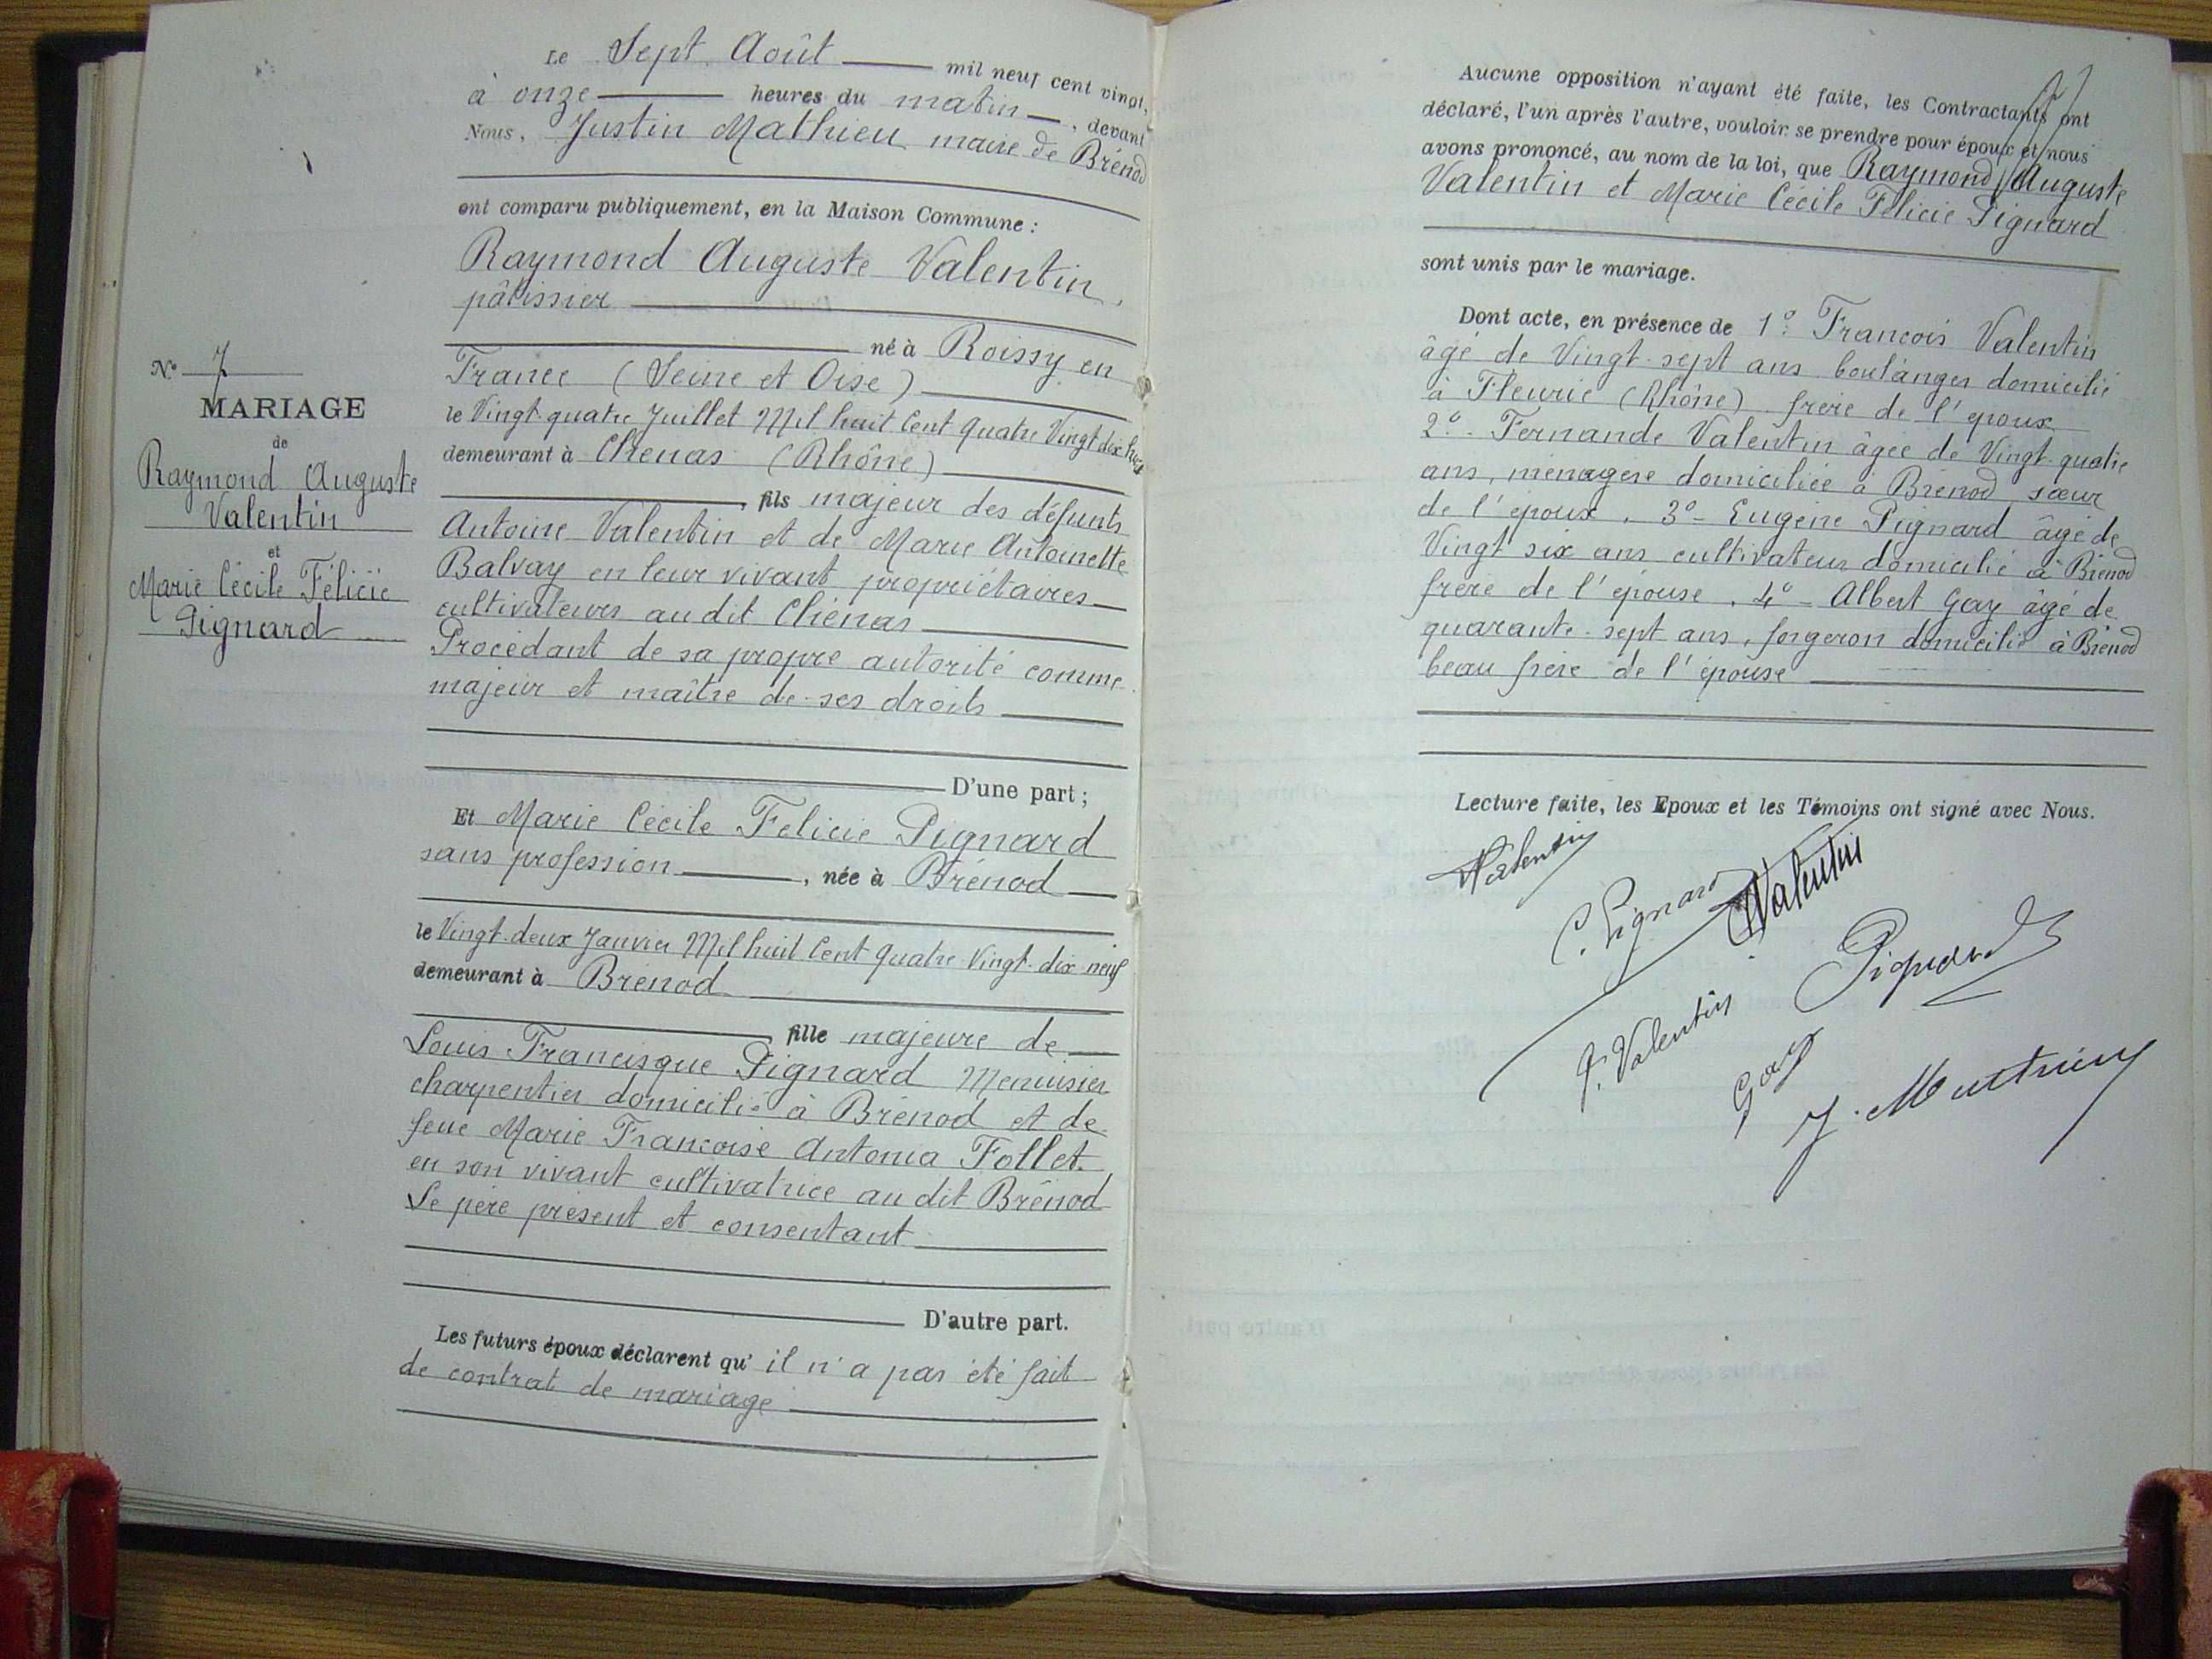 N° 7
MARIAGE
de
Raymond Auguste
Valentin
et
Marie Cécile Félicie
Pignard
Le Sept Août mil neuf cent vingt,
à onze heures du matin, devant
Nous, Justin Mathieu maire de Brénod
ont comparu publiquement, en la Maison Commune :
Raymond Auguste Valentin,
pâtissier
né à Roissy en
France (Seine et Oise)
le Vingt-quatre Juillet Mil huit Cent quatre Vingt dix huit
demeurant à Chénas (Rhône)
, fils majeur des défunts
Antoine Valentin et de Marie Antoinette
Balvay en leur vivant propriétaires
cultivateurs au dit Chénas
Procédant de sa propre autorité comme
majeur et maître de ses droits
D'une part ;
Et Marie Cécile Felicie Pignard
sans profession, née à Brénod
le Vingt-deux Janvier Mil huit Cent quatre-Vingt-dix neuf
demeurant à Brénod
, fille majeure de
Louis Francisque Pignard Menuisier
charpentier domicilié à Brénod et de
feue Marie Françoise Antonia Follet
en son vivant cultivatrice au dit Brénod
Le père présent et consentant
D'autre part.
Les futurs époux déclarent qu'il n'a pas été fait
de contrat de mariage
Aucune opposition n'ayant été faite, les Contractants ont
déclaré, l'un après l'autre, vouloir se prendre pour époux et nous
avons prononcé, au nom de la loi, que Raymond Auguste
Valentin et Marie Cécile Félicie Pignard
sont unis par le mariage.
Dont acte, en présence de 1° François Valentin
âgé de Vingt-sept ans boulanger domicilié
à Fleurie (Rhône) frère de l'époux
2° - Fernande Valentin âgée de Vingt-quatre
ans, ménagère domiciliée à Brénod sœur
de l'époux, 3° - Eugène Pignard âgé de
Vingt six ans cultivateur domicilié à Brénod
frère de l'épouse, 4° - Albert Gay âgé de
quarante-sept ans, forgeron domicilié à Brénod
beau frère de l'épouse
Lecture faite, les Epoux et les Témoins ont signé avec Nous.
Valentin
C. Pignard Valentin
F. Valentin Pignard
Gay
J. Mathieu